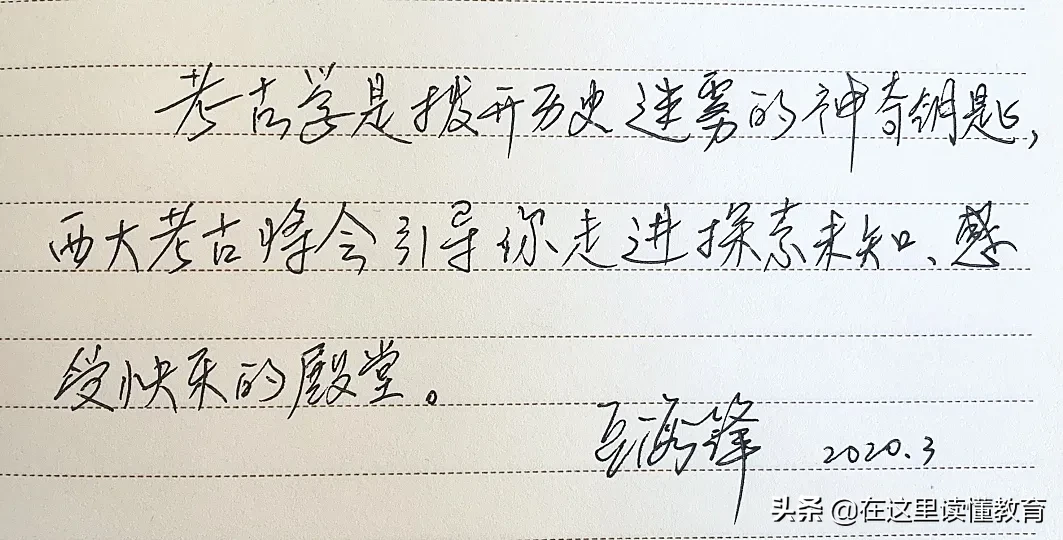 考古学是拨开历史迷雾的神奇钥匙,
西大考古将会引导你走进探索未知、感
受快乐的殿堂。
豆海锋 2020.3
头条 @在这里读懂教育